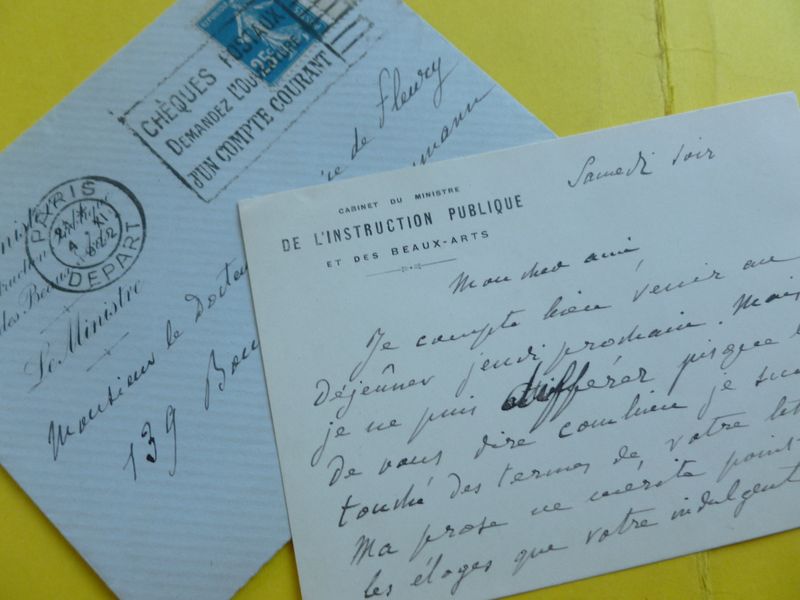 CHÈQUES POSTAUX
DEMANDEZ L'OUVERTURE
D'UN COMPTE COURANT
25c
PARIS
DEPART
Le Ministre
Monsieur le Docteur
de Fleury
139 Bou
mann
Samedi soir
CABINET DU MINISTRE
DE L'INSTRUCTION PUBLIQUE
ET DES BEAUX-ARTS
Mon cher ami
Je compte bien venir au
déjeûner jeudi prochain. Mais
je ne puis différer jusque
de vous dire combien je suis
touché des termes de votre
Ma prose ne mérite point
les éloges que votre indulgent